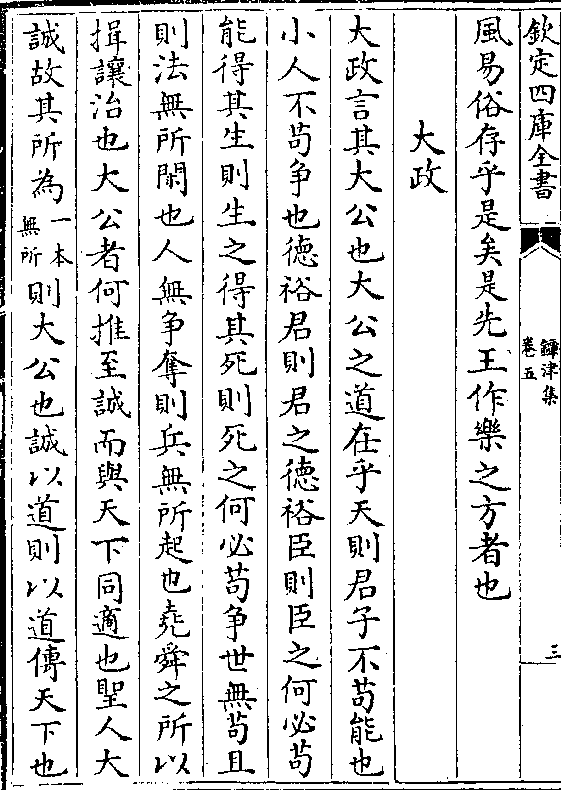 欽定四庫全書
鐔津集
卷五
三
風易俗存乎是矣是先王作樂之方者也
大政
大政言其大公也大公之道在乎天則君子不苟能也
小人不苟争也德裕君則君之德裕臣則臣之何必苟
能得其生則生之得其死則死之何必苟争世無苟且
則法無所閑也人無争奪則兵無所起也堯舜之所以
揖讓治也大公者何推至誠而與天下同適也聖人大
誠故其所為一本無所則大公也誠以道則以道傳天下也